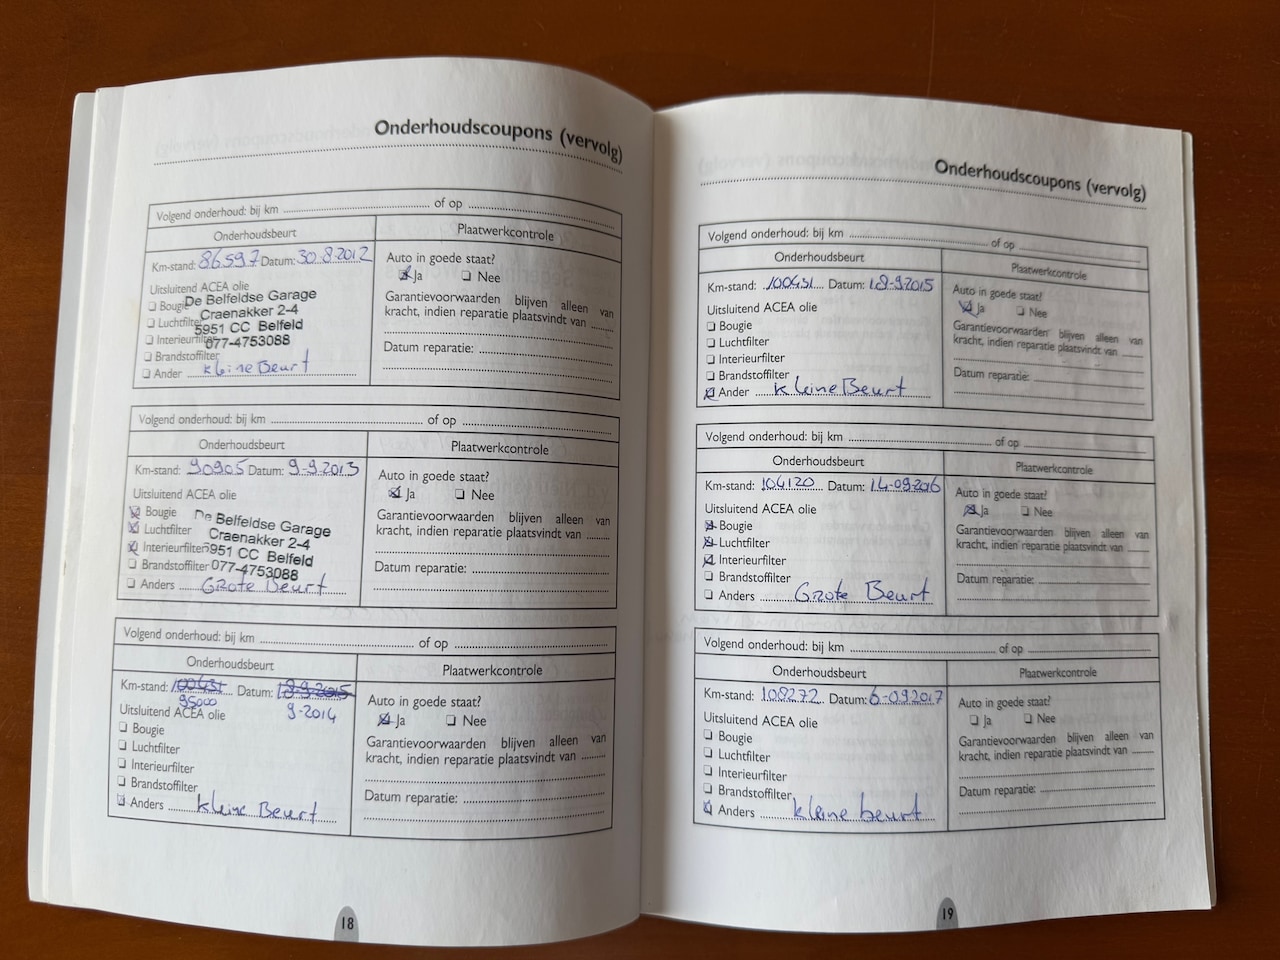 Onderhoudscoupons (vervolg)
Volgend onderhoud: bij km of op
Onderhoudsbeurt Plaatwerkcontrole
Km-stand: 86597 Datum: 30.8.2012
Uitsluitend ACEA olie
Bougie
Luchtfilter
Interieurfilter
Brandstoffilter
Ander kleine Beurt
De Belfeldse Garage
Craenakker 2-4
5951 CC Belfeld
077-4753088
Auto in goede staat?
Ja Nee
Garantievoorwaarden blijven alleen van
kracht, indien reparatie plaatsvindt van
Datum reparatie:
Volgend onderhoud: bij km of op
Onderhoudsbeurt Plaatwerkcontrole
Km-stand: 90905 Datum: 9-9-2013
Uitsluitend ACEA olie
Bougie
Luchtfilter
Interieurfilter
Brandstoffilter
Anders Grote Beurt
De Belfeldse Garage
Craenakker 2-4
5951 CC Belfeld
077-4753088
Auto in goede staat?
Ja Nee
Garantievoorwaarden blijven alleen van
kracht, indien reparatie plaatsvindt van
Datum reparatie:
Volgend onderhoud: bij km of op
Onderhoudsbeurt Plaatwerkcontrole
Km-stand: 100431 Datum: 18-9-2015
95000 9-2014
Uitsluitend ACEA olie
Bougie
Luchtfilter
Interieurfilter
Brandstoffilter
Anders kleine Beurt
Auto in goede staat?
Ja Nee
Garantievoorwaarden blijven alleen van
kracht, indien reparatie plaatsvindt van
Datum reparatie:
18
Onderhoudscoupons (vervolg)
Volgend onderhoud: bij km of op
Onderhoudsbeurt Plaatwerkcontrole
Km-stand: 100431 Datum: 18-9-2015
Uitsluitend ACEA olie
Bougie
Luchtfilter
Interieurfilter
Brandstoffilter
Ander kleine Beurt
Auto in goede staat?
Ja Nee
Garantievoorwaarden blijven alleen van
kracht, indien reparatie plaatsvindt van
Datum reparatie:
Volgend onderhoud: bij km of op
Onderhoudsbeurt Plaatwerkcontrole
Km-stand: 104120 Datum: 14-09-2016
Uitsluitend ACEA olie
Bougie
Luchtfilter
Interieurfilter
Brandstoffilter
Anders Grote Beurt
Auto in goede staat?
Ja Nee
Garantievoorwaarden blijven alleen van
kracht, indien reparatie plaatsvindt van
Datum reparatie:
Volgend onderhoud: bij km of op
Onderhoudsbeurt Plaatwerkcontrole
Km-stand: 108272 Datum: 6-09-2017
Uitsluitend ACEA olie
Bougie
Luchtfilter
Interieurfilter
Brandstoffilter
Anders kleine beurt
Auto in goede staat?
Ja Nee
Garantievoorwaarden blijven alleen van
kracht, indien reparatie plaatsvindt van
Datum reparatie:
19